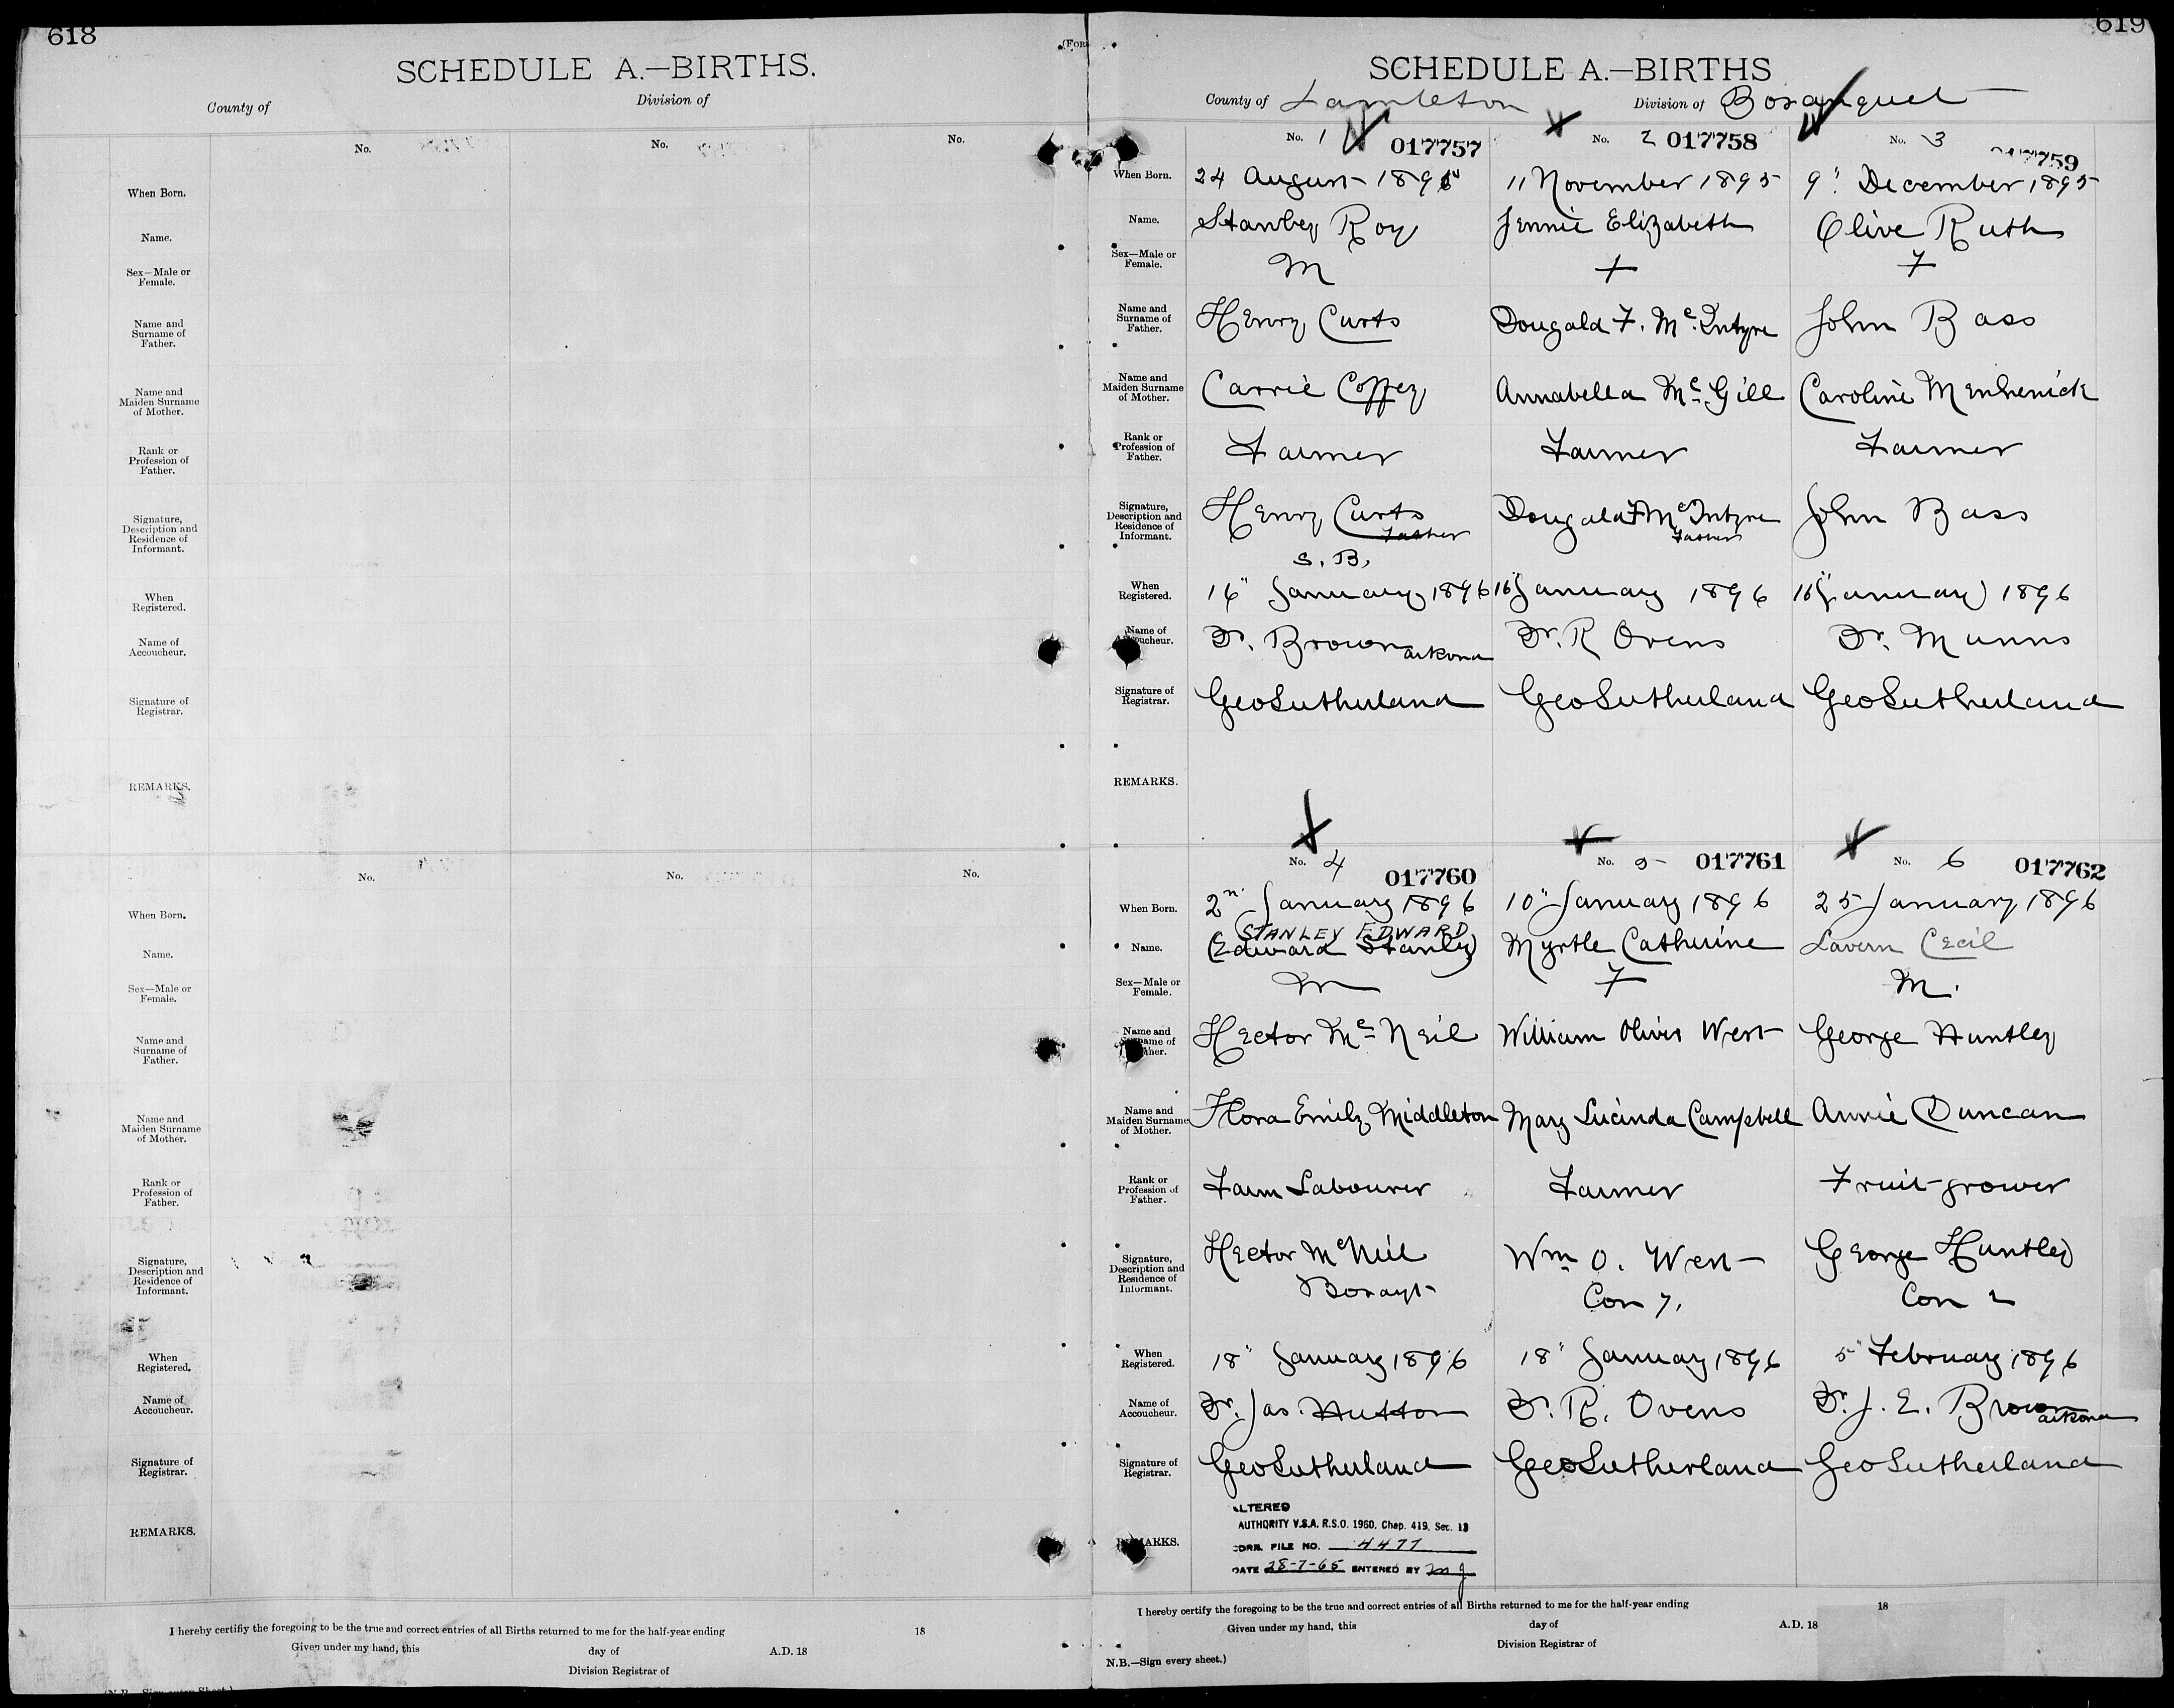 618
SCHEDULE A.—BIRTHS.
County of
Division of
No.
No.
No.
When Born.
Name.
Sex—Male or
Female.
Name and
Surname of
Father.
Name and
Maiden Surname
of Mother.
Rank or
Profession of
Father.
Signature,
Description and
Residence of
Informant.
When
Registered.
Name of
Accoucheur.
Signature of
Registrar.
REMARKS.
No.
No.
No.
When Born.
Name.
Sex—Male or
Female.
Name and
Surname of
Father.
Name and
Maiden Surname
of Mother.
Rank or
Profession of
Father.
Signature,
Description and
Residence of
Informant.
When
Registered.
Name of
Accoucheur.
Signature of
Registrar.
REMARKS.
I hereby certifiy the foregoing to be the true and correct entries of all Births returned to me for the half-year ending 18
Given under my hand, this day of A.D. 18
Division Registrar of
(FOR
619
SCHEDULE A.—BIRTHS
County of Lambton Division of Bosanquet
No. 1 017757 No. 2 017758 No. 3 017759
When Born. 24 August 1895 11 November 1895 9" December 1895
Name. Stanley Roy Jennie Elizabeth Olive Ruth
Sex—Male or
Female. M F F
Name and
Surname of
Father. Henry Curts Dougald F. McIntyre John Bass
Name and
Maiden Surname
of Mother. Carrie Coffey Annabella McGill Caroline Menhenick
Rank or
Profession of
Father. Farmer Farmer Farmer
Signature,
Description and
Residence of
Informant. Henry Curts Father S. B. Dougald F McIntyre Father John Bass
When
Registered. 16" January 1896 16" January 1896 16" January 1896
Name of
Accoucheur. Dr. Brown Arkona Dr. R Ovens Dr. Munns
Signature of
Registrar. Geo Sutherland Geo Sutherland Geo Sutherland
REMARKS.
No. 4 017760 No. 5 017761 No. 6 017762
When Born. 2n January 1896 10" January 1896 25 January 1896
STANLEY EDWARD
Name. (Edward Stanley) Myrtle Catherine Lavern Cecil
Sex—Male or
Female. M F M.
Name and
Surname of
Father. Hector McNeil William Oliver West George Huntley
Name and
Maiden Surname
of Mother. Flora Emily Middleton Mary Lucinda Campbell Annie Duncan
Rank or
Profession of
Father. Farm Labourer Farmer Fruit-grower
Signature,
Description and
Residence of
Informant. Hector McNeil Bosaqt Wm O. West Con 7. George Huntley Con 2
When
Registered. 18" January 1896 18" January 1896 5" February 1896
Name of
Accoucheur. Dr. Jas. Hutton Dr. R. Ovens Dr. J. E. Brown Arkona
Signature of
Registrar. Geo Sutherland Geo Sutherland Geo Sutherland
REMARKS.
ALTERED
AUTHORITY V.S.A. R.S.O. 1960, Chap. 419, Sec. 13
CORR. FILE NO. 4477
DATE 28-7-65 ENTERED BY
I hereby certify the foregoing to be the true and correct entries of all Births returned to me for the half-year ending 18
Given under my hand, this day of A.D. 18
Division Registrar of
N.B.—Sign every sheet.)